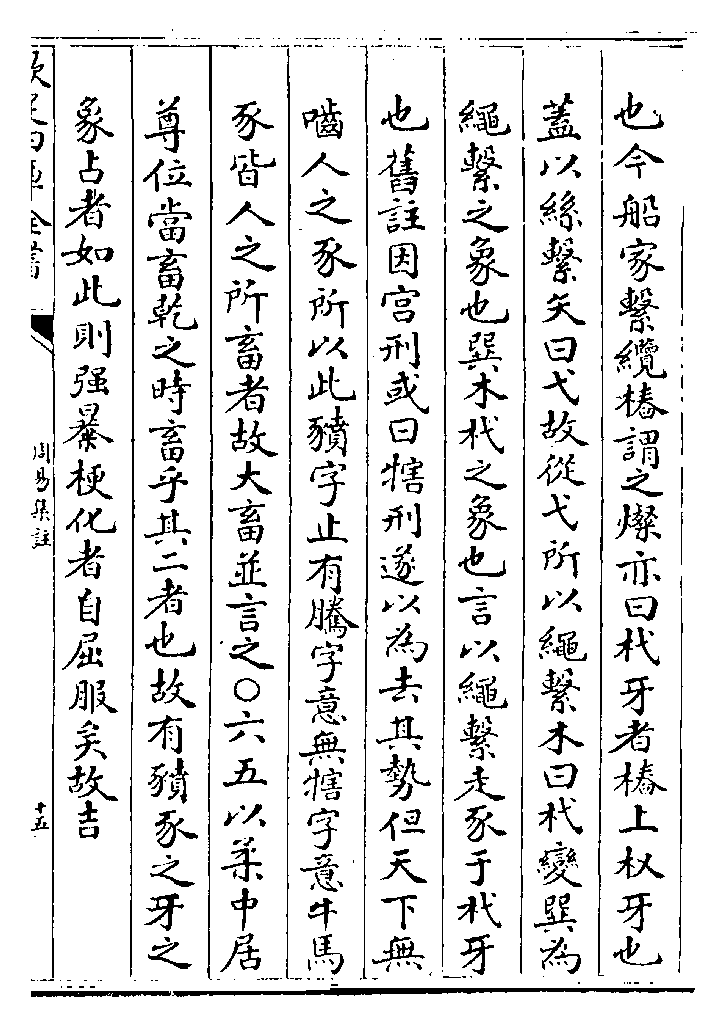 也今船家繫纜樁謂之㸑亦曰杙牙者樁上杈牙也
蓋以絲繫矢曰弋故從弋所以繩繫木曰杙變巽為
繩繫之象也巽木杙之象也言以繩繫走豕于杙牙
也舊註因宫刑或曰犗刑遂以為去其勢但天下無
嚙人之豕所以此豶字止有騰字意無犗字意牛馬
豕皆人之所畜者故大畜並言之○六五以柔中居
尊位當畜乾之時畜乎其二者也故有豶豕之牙之
象占者如此則强暴梗化者自屈服矣故吉
欽定四庫全書
周易集註
十五